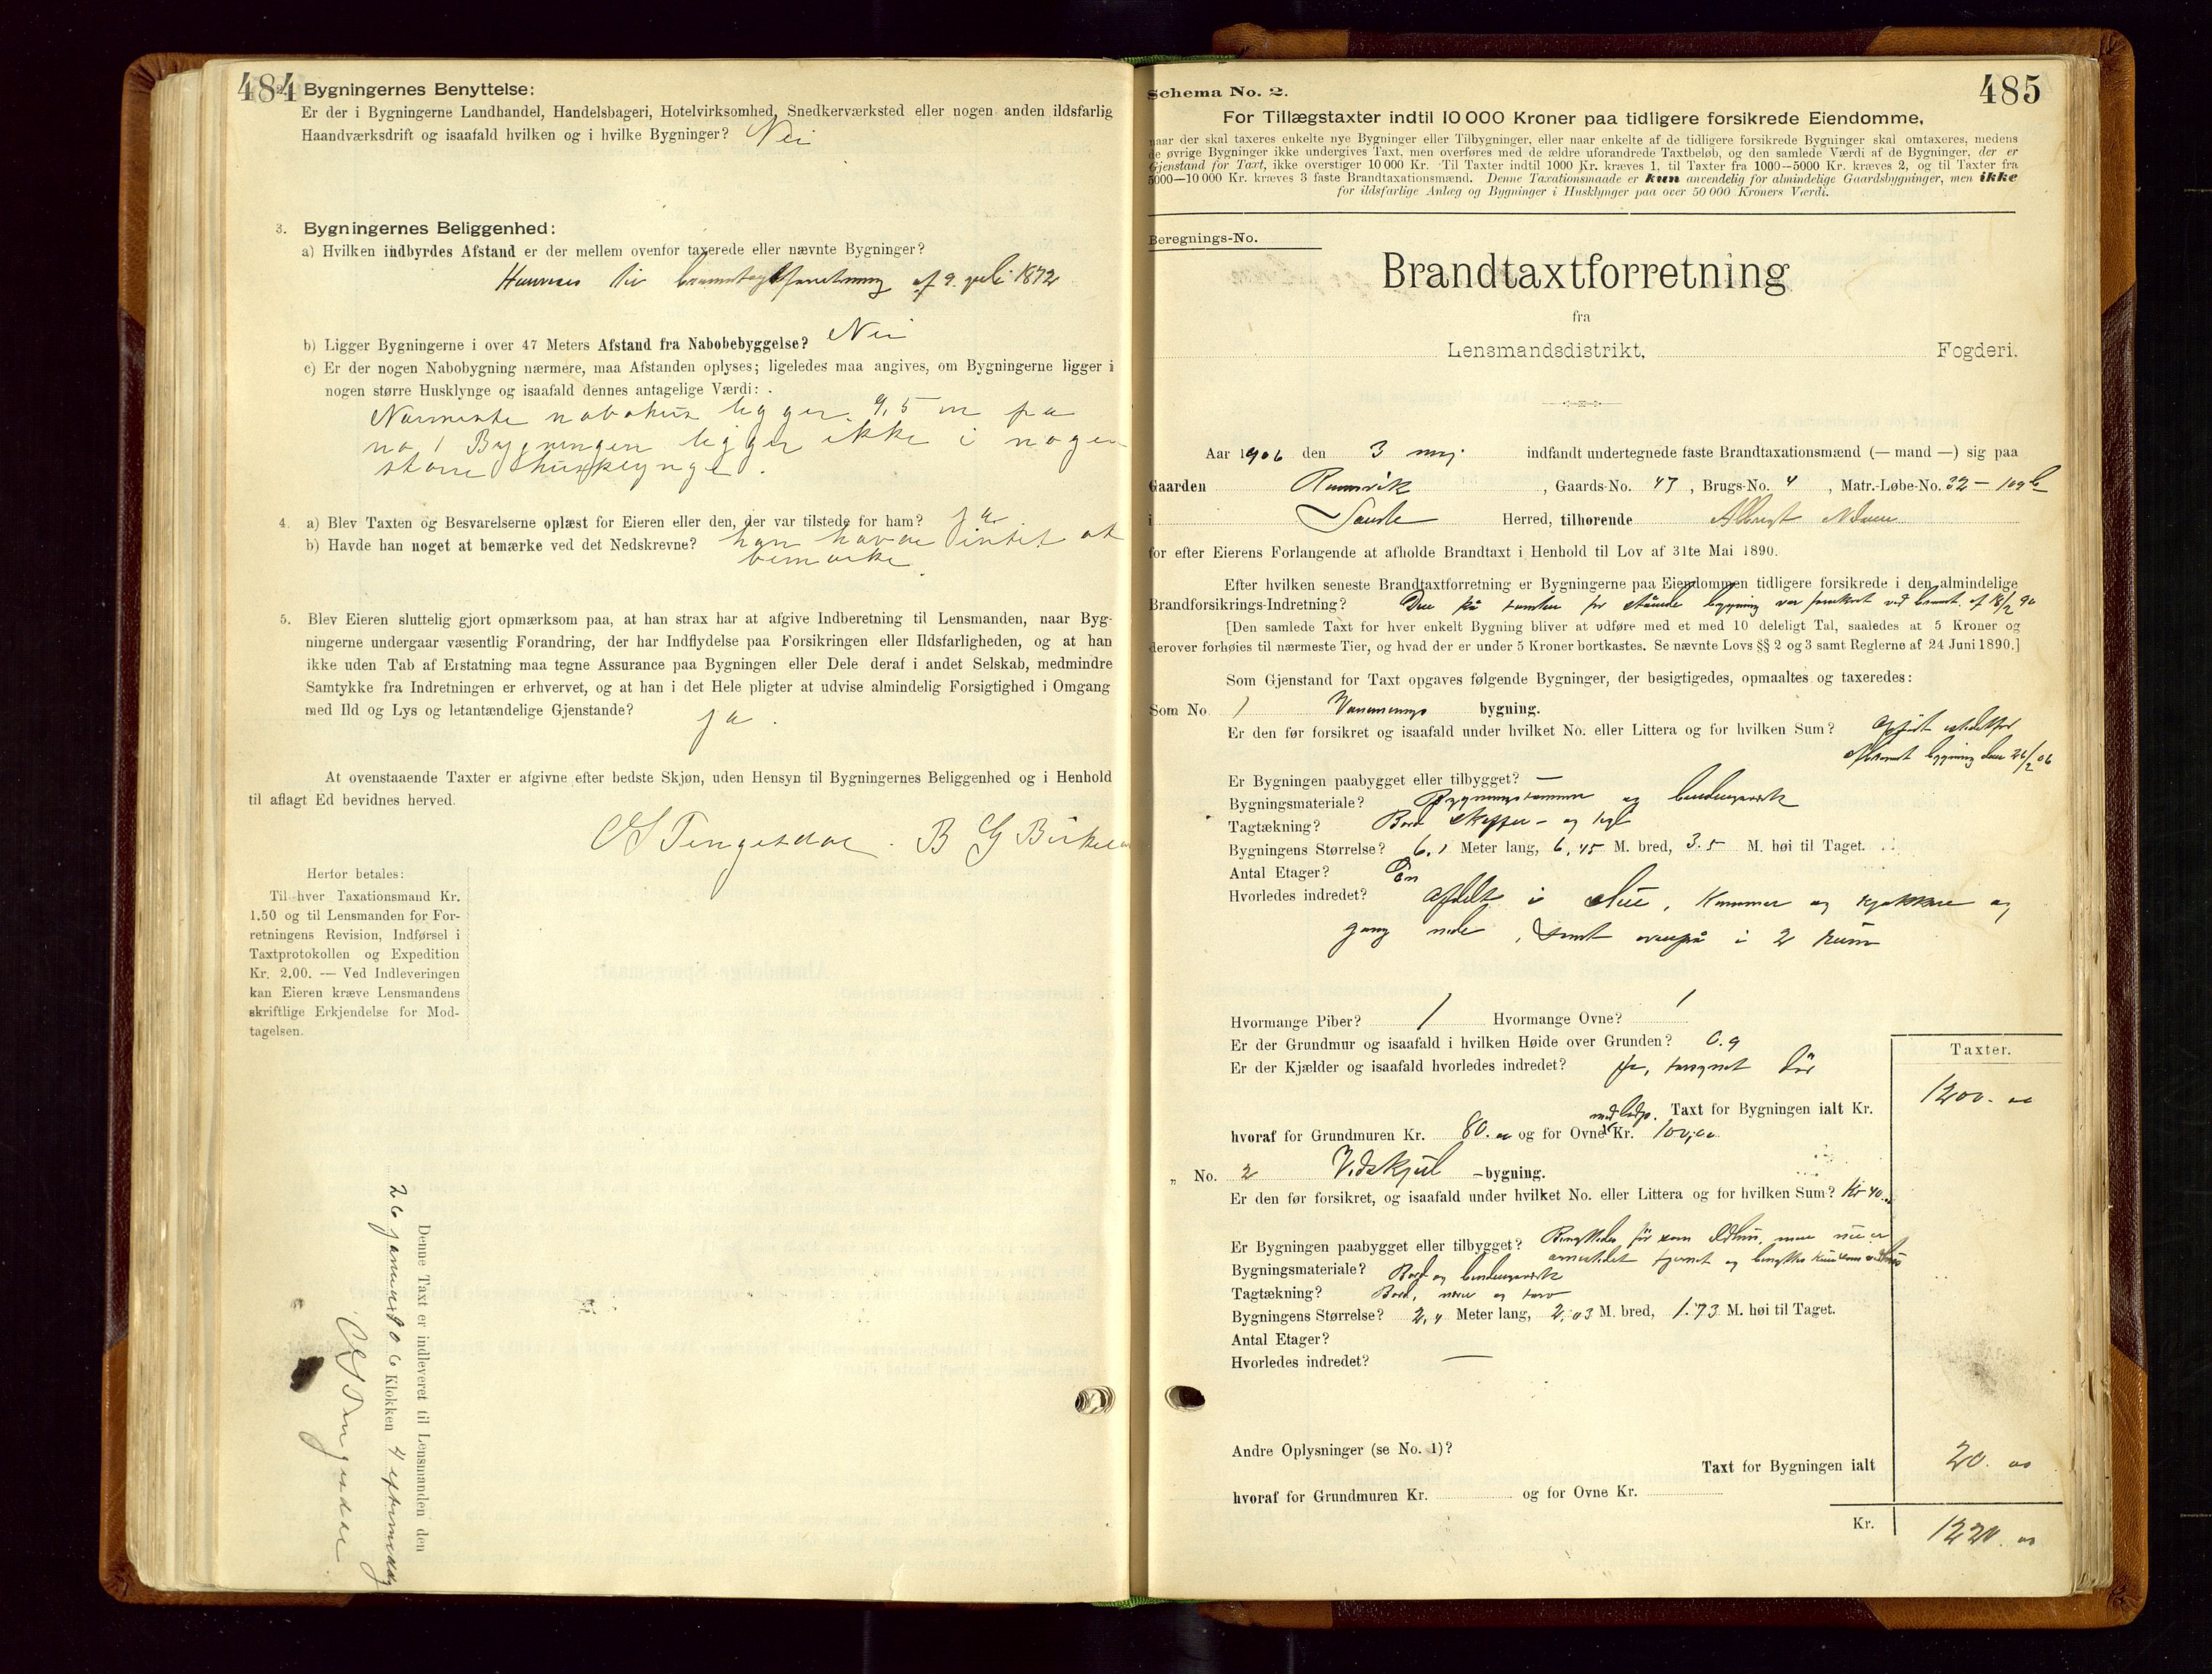 484
Bygningernes Benyttelse:
Er der i Bygningerne Landhandel, Handelsbageri, Hotelvirksomhed, Snedkerværksted eller nogen anden ildsfarlig
Haandværksdrift og isaafald hvilken og i hvilke Bygninger? Nei
3. Bygningernes Beliggenhed:
a) Hvilken indbyrdes Afstand er der mellem ovenfor taxerede eller nævnte Bygninger?
Henvises til af 9. juli 1892
b) Ligger Bygningerne i over 47 Meters Afstand fra Nabobebyggelse? Nei
c) Er der nogen Nabobygning nærmere, maa Afstanden oplyses; ligeledes maa angives, om Bygningerne ligger i
nogen større Husklynge og isaafald dennes antagelige Værdi:
Nærmeste nabohus ligger 9,5 m fra
no 1 Bygningen ligger ikke i nogen
større husklynge.
4. a) Blev Taxten og Besvarelserne oplæst for Eieren eller den, der var tilstede for ham? Ja
b) Havde han noget at bemærke ved det Nedskrevne? han havde intet at
bemærke.
5. Blev Eieren sluttelig gjort opmærksom paa, at han strax har at afgive Indberetning til Lensmanden, naar Byg-
ningerne undergaar væsentlig Forandring, der har Indflydelse paa Forsikringen eller Ildsfarligheden, og at han
ikke uden Tab af Erstatning maa tegne Assurance paa Bygningen eller Dele deraf i andet Selskab, medmindre
Samtykke fra Indretningen er erhvervet, og at han i det Hele pligter at udvise almindelig Forsigtighed i Omgang
med Ild og Lys og letantændelige Gjenstande? ja.
At ovenstaaende Taxter er afgivne efter bedste Skjøn, uden Hensyn til Bygningernes Beliggenhed og i Henhold
til aflagt Ed bevidnes herved.
Tengesdal. B G Birkel
Herfor betales:
Til hver Taxationsmand Kr.
1.50 og til Lensmanden for For-
retningens Revision, Indførsel i
Taxtprotokollen og Expedition
Kr. 2.00. — Ved Indleveringen
kan Eieren kræve Lensmandens
skriftlige Erkjendelse for Mod-
tagelsen.
Denne Taxt er indleveret til Lensmanden den
26 januar 1906 Klokken 4 eftermiddag
Tengesdal
485
Schema No. 2.
For Tillægstaxter indtil 10 000 Kroner paa tidligere forsikrede Eiendomme,
naar der skal taxeres enkelte nye Bygninger eller Tilbygninger, eller naar enkelte af de tidligere forsikrede Bygninger skal omtaxeres, medens
de øvrige Bygninger ikke undergives Taxt, men overføres med de ældre uforandrede Taxtbeløb, og den samlede Værdi af de Bygninger, der er
Gjenstand for Taxt, ikke overstiger 10 000 Kr. Til Taxter indtil 1000 Kr. kræves 1, til Taxter fra 1000—5000 Kr. kræves 2, og til Taxter fra
5000—10 000 Kr. kræves 3 faste Brandtaxationsmænd. Denne Taxationsmaade er kun anvendelig for almindelige Gaardsbygninger, men ikke
for ildsfarlige Anlæg og Bygninger i Husklynger paa over 50 000 Kroners Værdi.
Beregnings-No.
Brandtaxtforretning
fra
Lensmandsdistrikt, Fogderi.
Aar 1906 den 3 maj indfandt undertegnede faste Brandtaxationsmænd (— mand —) sig paa
Gaarden , Gaards-No. 47, Brugs-No. 4, Matr.-Løbe-No. 32 – 109b
i Herred, tilhørende Albregt
for efter Eierens Forlangende at afholde Brandtaxt i Henhold til Lov af 31te Mai 1890.
Efter hvilken seneste Brandtaxtforretning er Bygningerne paa Eiendommen tidligere forsikrede i den almindelige
Brandforsikrings-Indretning? Den på tomten før stående bygning var forsikret ved af 18/2 90
[Den samlede Taxt for hver enkelt Bygning bliver at udføre med et med 10 deleligt Tal, saaledes at 5 Kroner og
derover forhøies til nærmeste Tier, og hvad der er under 5 Kroner bortkastes. Se nævnte Lovs §§ 2 og 3 samt Reglerne af 24 Juni 1890.]
Som Gjenstand for Taxt opgaves følgende Bygninger, der besigtigedes, opmaaltes og taxeredes:
Som No. 1 Vaanings bygning.
Er den før forsikret og isaafald under hvilket No. eller Littera og for hvilken Sum? Opført istedetfor
Afbrændt bygning den 26/2 06
Er Bygningen paabygget eller tilbygget? —
Bygningsmateriale? Bygningstømmer og bindingsværk
Tagtækning? Bord og tegl
Bygningens Størrelse? 6,1 Meter lang, 6,45 M. bred, 3.5 M. høi til Taget.
Antal Etager? En
Hvorledes indredet? Afdelt i stue, Kammer og Kjøkken og
gang nede, samt ovenpå i 2 Rum
Hvormange Piber? 1 Hvormange Ovne? 1
Er der Grundmur og isaafald i hvilken Høide over Grunden? 0.9
Er der Kjælder og isaafald hvorledes indredet? Ja, dør
Taxter.
Taxt for Bygningen ialt Kr. 1200. 00
hvoraf for Grundmuren Kr. 80.00 og for Ovne Kr. 100,00
„ No. 2 Vedskjul -bygning.
Er den før forsikret, og isaafald under hvilket No. eller Littera og for hvilken Sum? Kr 40.00
Er Bygningen paabygget eller tilbygget? Benyttedes før som Ildhus, men nu er
arnestedet fjernet og benyttes kun som vedhus
Bygningsmateriale? Bord og bindingsværk
Tagtækning? Bord, næver og torv
Bygningens Størrelse? 2,4 Meter lang, 2,03 M. bred, 1.73 M. høi til Taget.
Antal Etager?
Hvorledes indredet? —
Andre Oplysninger (se No. 1)?
Taxt for Bygningen ialt 20. 00
hvoraf for Grundmuren Kr. og for Ovne Kr.
Kr. 1220. 00